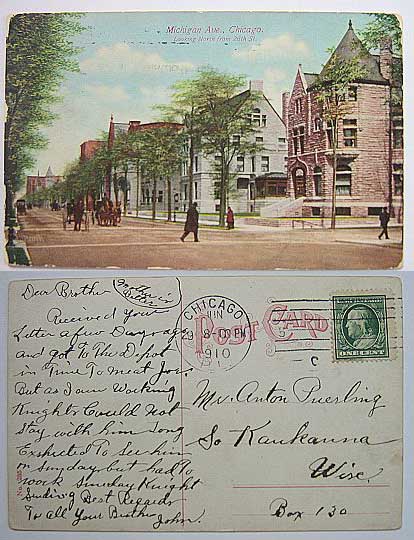 Michigan Ave., Chicago.
Looking North from 26th St.
Dear Brother
Received Your
Letter a few Days ago
and got To The Depot
in Time To meat Joe.
But as I am Working
Knights Could Not
Stay with him Long
Exspected To See him
on Sunday but had To
work Sunday Knight
Sending Best Regards
To all Your Brother
John.
CHICAGO
JUN
29
8-30 PM
1910
POST CARD
C
Mr. Anton Puerling
So Kaukauna
Wisc.
Box 130